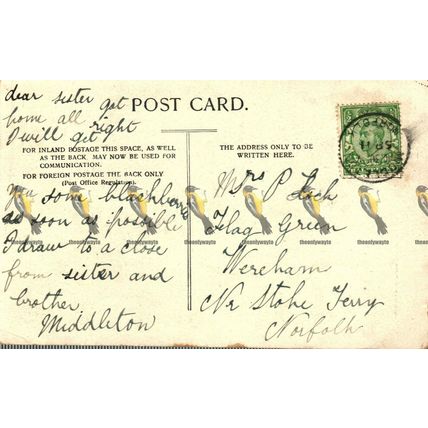 dear sister got
home all right
I will get
POST CARD.
FOR INLAND POSTAGE THIS SPACE, AS WELL
AS THE BACK MAY NOW BE USED FOR
COMMUNICATION.
FOR FOREIGN POSTAGE THE BACK ONLY
(Post Office Regulation).
you some blackberrie
as soon as possible
I draw to a close
from sister and
brother
Middleton
THE ADDRESS ONLY TO BE
WRITTEN HERE.
Mrs P
Flag Green
Wereham
Nr Stoke Ferry
Norfolk
theonlywayto theonlywayto theonlywayto theonlywayto theonlywayto theonlywayto